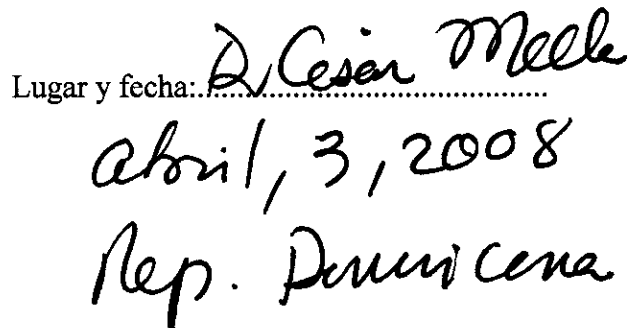 Lugar y fecha: Dr Cesar Mella
abril, 3, 2008
Rep. Dominicana